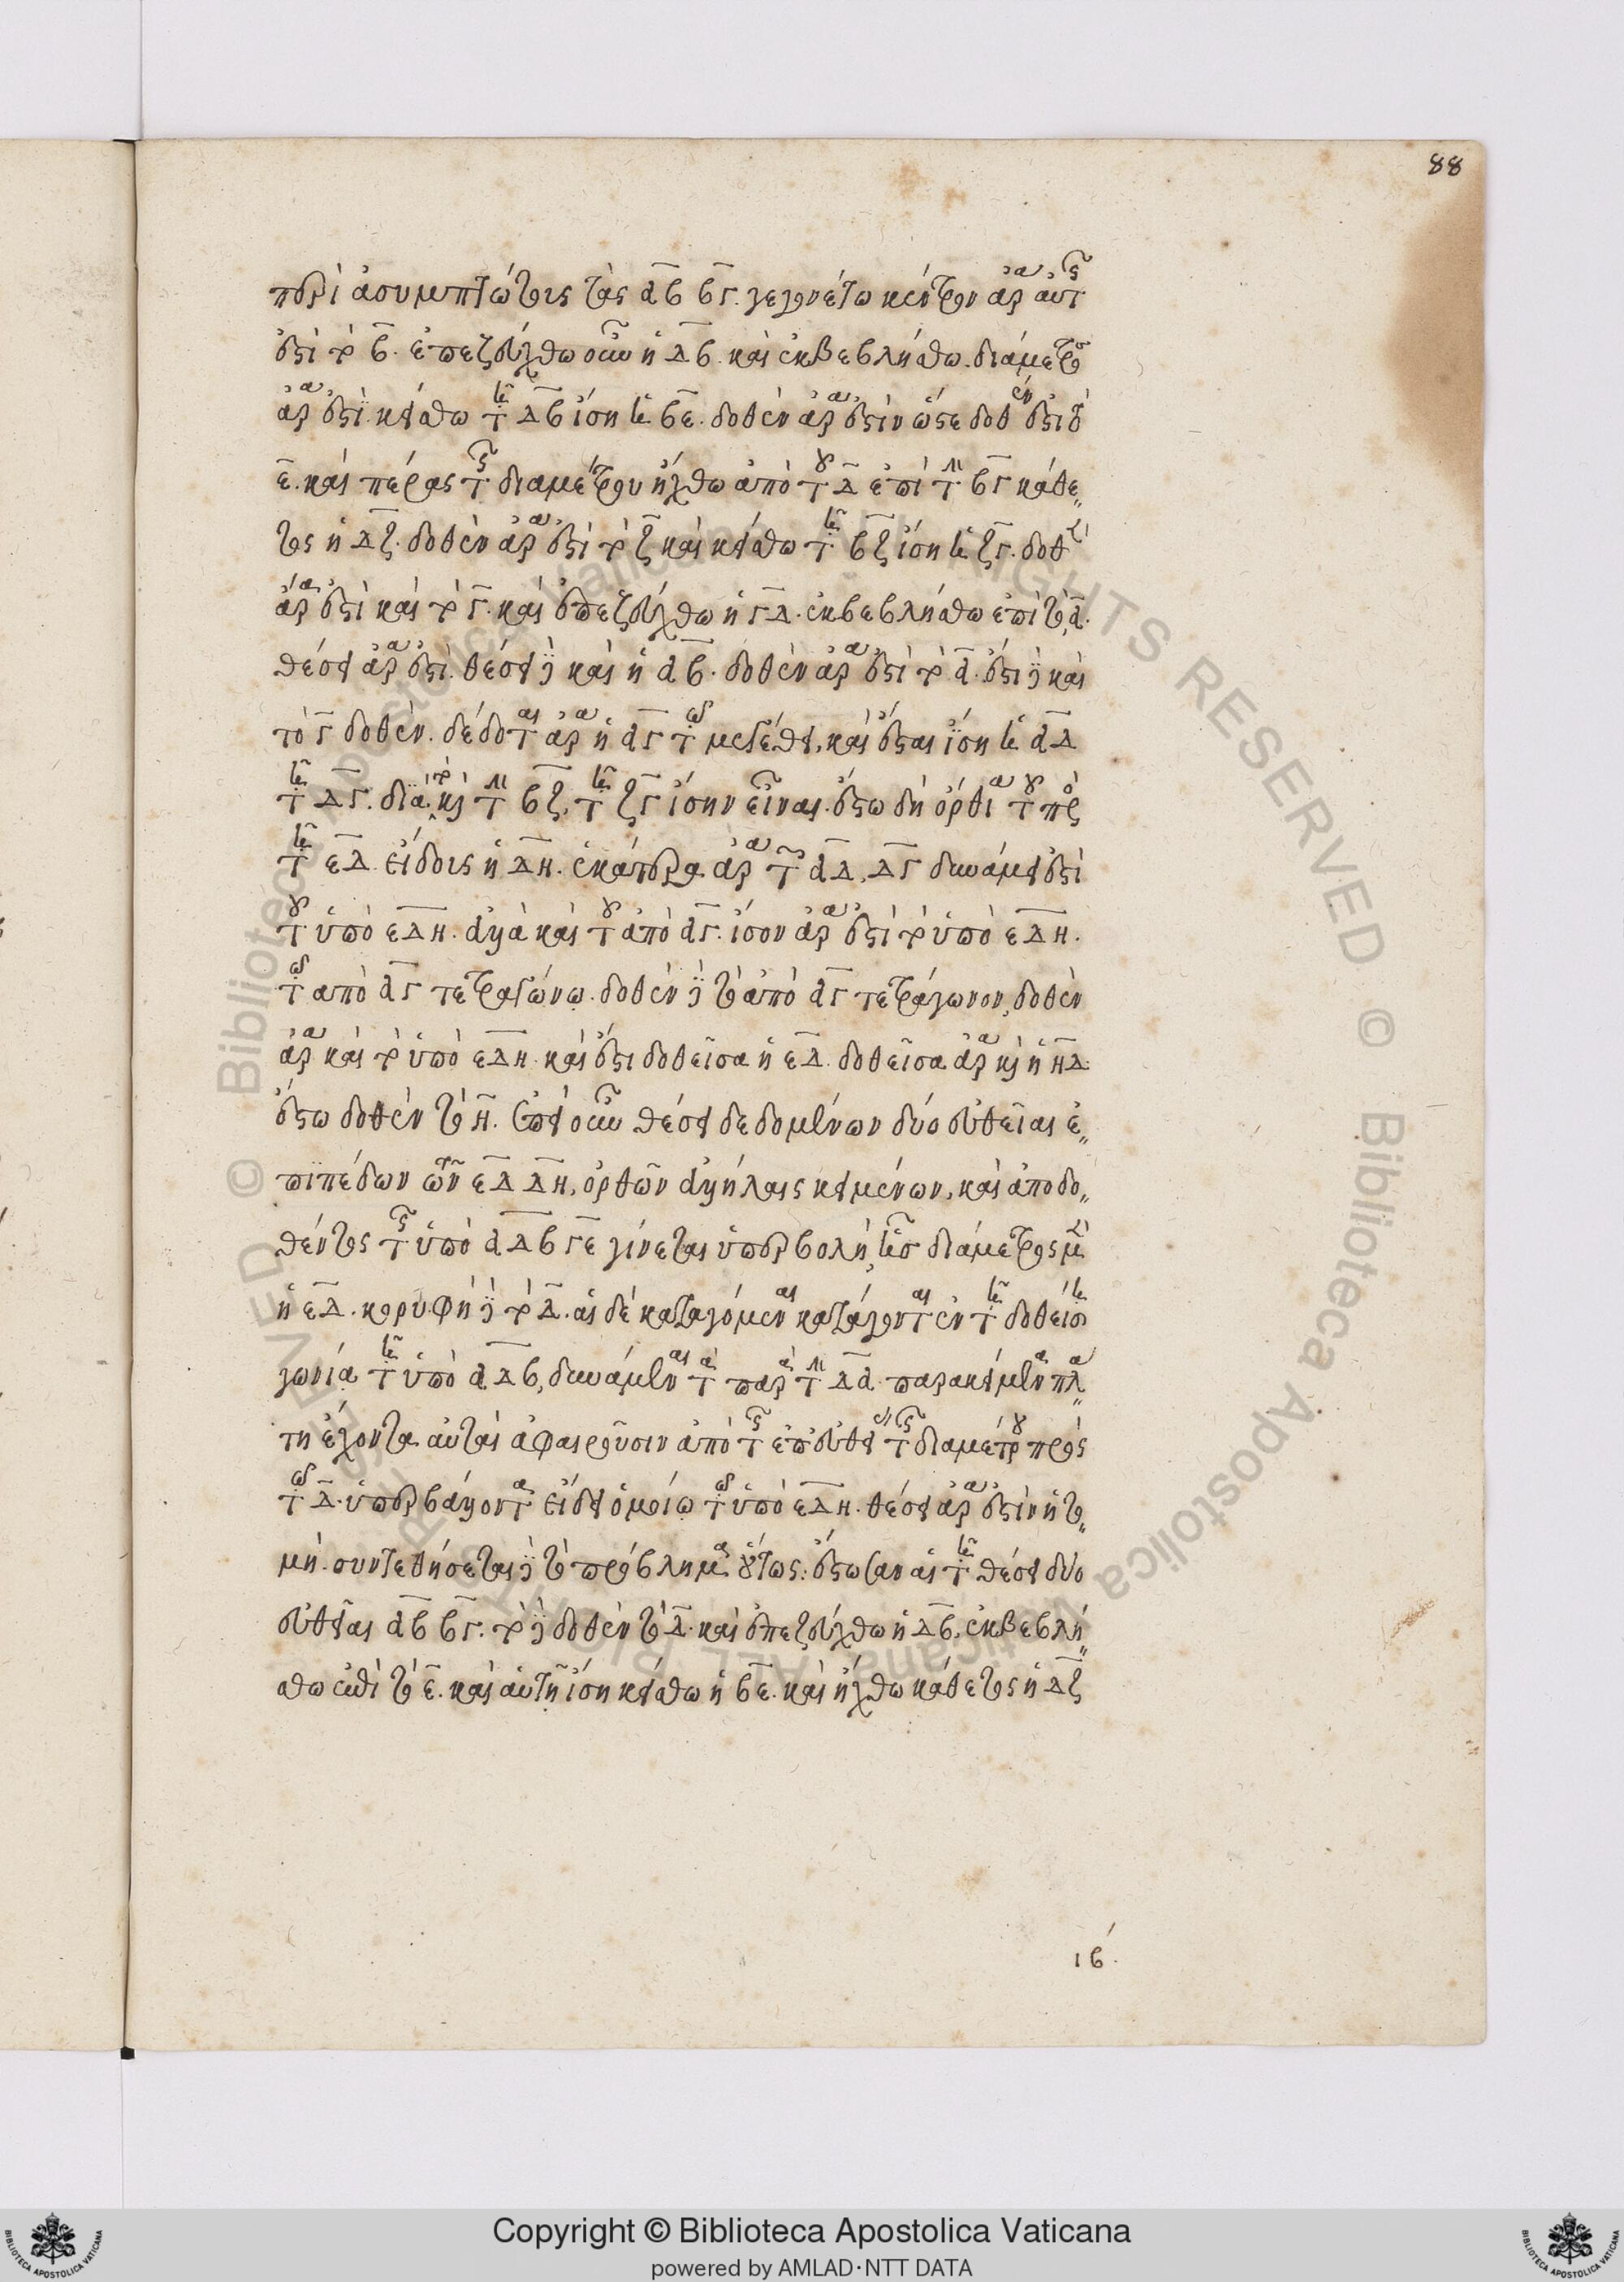 88
περὶ ἀσυμπτώτοις τὰς αβ βγ. γεγονέτω κέντρον ἄρα αὐτῆς
ἐστὶ τὸ β. ἐπεζεύχθω οὖν ἡ δβ. καὶ ἐκβεβλήσθω. διάμετρος
ἄρα ἐστὶ. κείσθω τῇ δβ ἴση ἡ βε. δοθὲν ἄρα ἐστὶν ὥστε δοθέν ἐστι τὸ
ε. καὶ πέρας τῆς διαμέτρου ἤχθω ἀπὸ τοῦ δ ἐπὶ τὴν βγ κάθε
τος ἡ δζ. δοθὲν ἄρα ἐστὶ τὸ ζ καὶ κείσθω τῇ βζ ἴση ἡ ζγ. δοθὲν
ἄρα ἐστὶ καὶ τὸ γ. καὶ ἐπεζεύχθω ἡ γδ. ἐκβεβλήσθω ἐπὶ τὸ α.
θέσει ἄρα ἐστὶ. θέσει δὲ καὶ ἡ αβ. δοθὲν ἄρα ἐστὶ τὸ α. ἐστι δὲ καὶ
τὸ γ δοθὲν. δέδοται ἄρα ἡ αγ τῷ μεγέθει, καὶ ἔσται ἴση ἡ αδ
τῇ δγ. διὰ τὸ καὶ τὴν βζ, τῇ ζγ ἴσην εἶναι. ἔστω δὴ ὀρθία τοῦ πρὸς
τῇ εδ εἴδους ἡ δη. ἑκατέρα ἄρα τῶν αδ, δγ δυνάμει ἐστὶ
τοῦ ὑπὸ εδη. ἀλλὰ καὶ τοῦ ἀπὸ αγ. ἴσον ἄρα ἐστὶ τὸ ὑπὸ εδη.
τῷ ἀπὸ αγ τετραγώνῳ. δοθὲν δὲ τὸ ἀπὸ αγ τετράγωνον, δοθὲν
ἄρα καὶ τὸ ὑπὸ εδη. καὶ ἔστι δοθεῖσα ἡ εδ. δοθεῖσα ἄρα καὶ ἡ ηδ.
ἔστω δοθὲν τὸ η. ἐπεὶ οὖν θέσει δεδομένων δύο εὐθεῖαι ἐ
πιπέδων τῶν εδ δη, ὀρθῶν ἀλλήλαις κειμένων, καὶ ἀπὸ δο
θέντος τῆς ὑπὸ αδβ γε γίνεται ὑπερβολὴ, ἧς διάμετρος μὲν
ἡ εδ. κορυφὴ δὲ τὸ δ. αἱ δὲ καταγόμεναι κατάγονται ἐν τῇ δοθείσῃ
γωνίᾳ τῇ ὑπὸ αδβ, δυνάμεναι τὰ παρὰ τὴν δα παρακείμενα πλά
τη ἔχοντα αὐτὰς ἀφαιροῦσιν ἀπὸ τῆς ἐπ᾽ εὐθείας τῆς διαμέτρου πρὸς
τῷ δ. ὑπερβάλλοντα εἴδει ὁμοίῳ τῷ ὑπὸ εδη. θέσει ἄρα ἐστὶν ἡ το
μή. συντεθήσεται δὲ τὸ πρόβλημα οὕτως: ἔστωσαν αἱ τῇ θέσει δύο
εὐθεῖαι αβ βγ. τὸ δὲ δοθὲν τὸ δ. καὶ ἐπεζεύχθω ἡ δβ, ἐκβεβλή
σθω ἐπὶ τὸ ε. καὶ αὐτῇ ἴση κείσθω ἡ βε. καὶ ἤχθω κάθετος ἡ δζ
ιβ.
© Biblioteca Apostolica Vaticana ALL RIGHTS RESERVED
Copyright © Biblioteca Apostolica Vaticana
powered by AMLAD·NTT DATA